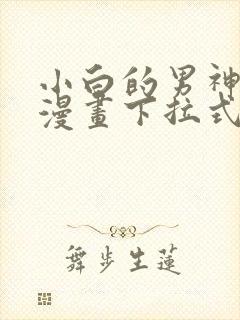 小白的男神
漫畫下拉式
舞步生蓮